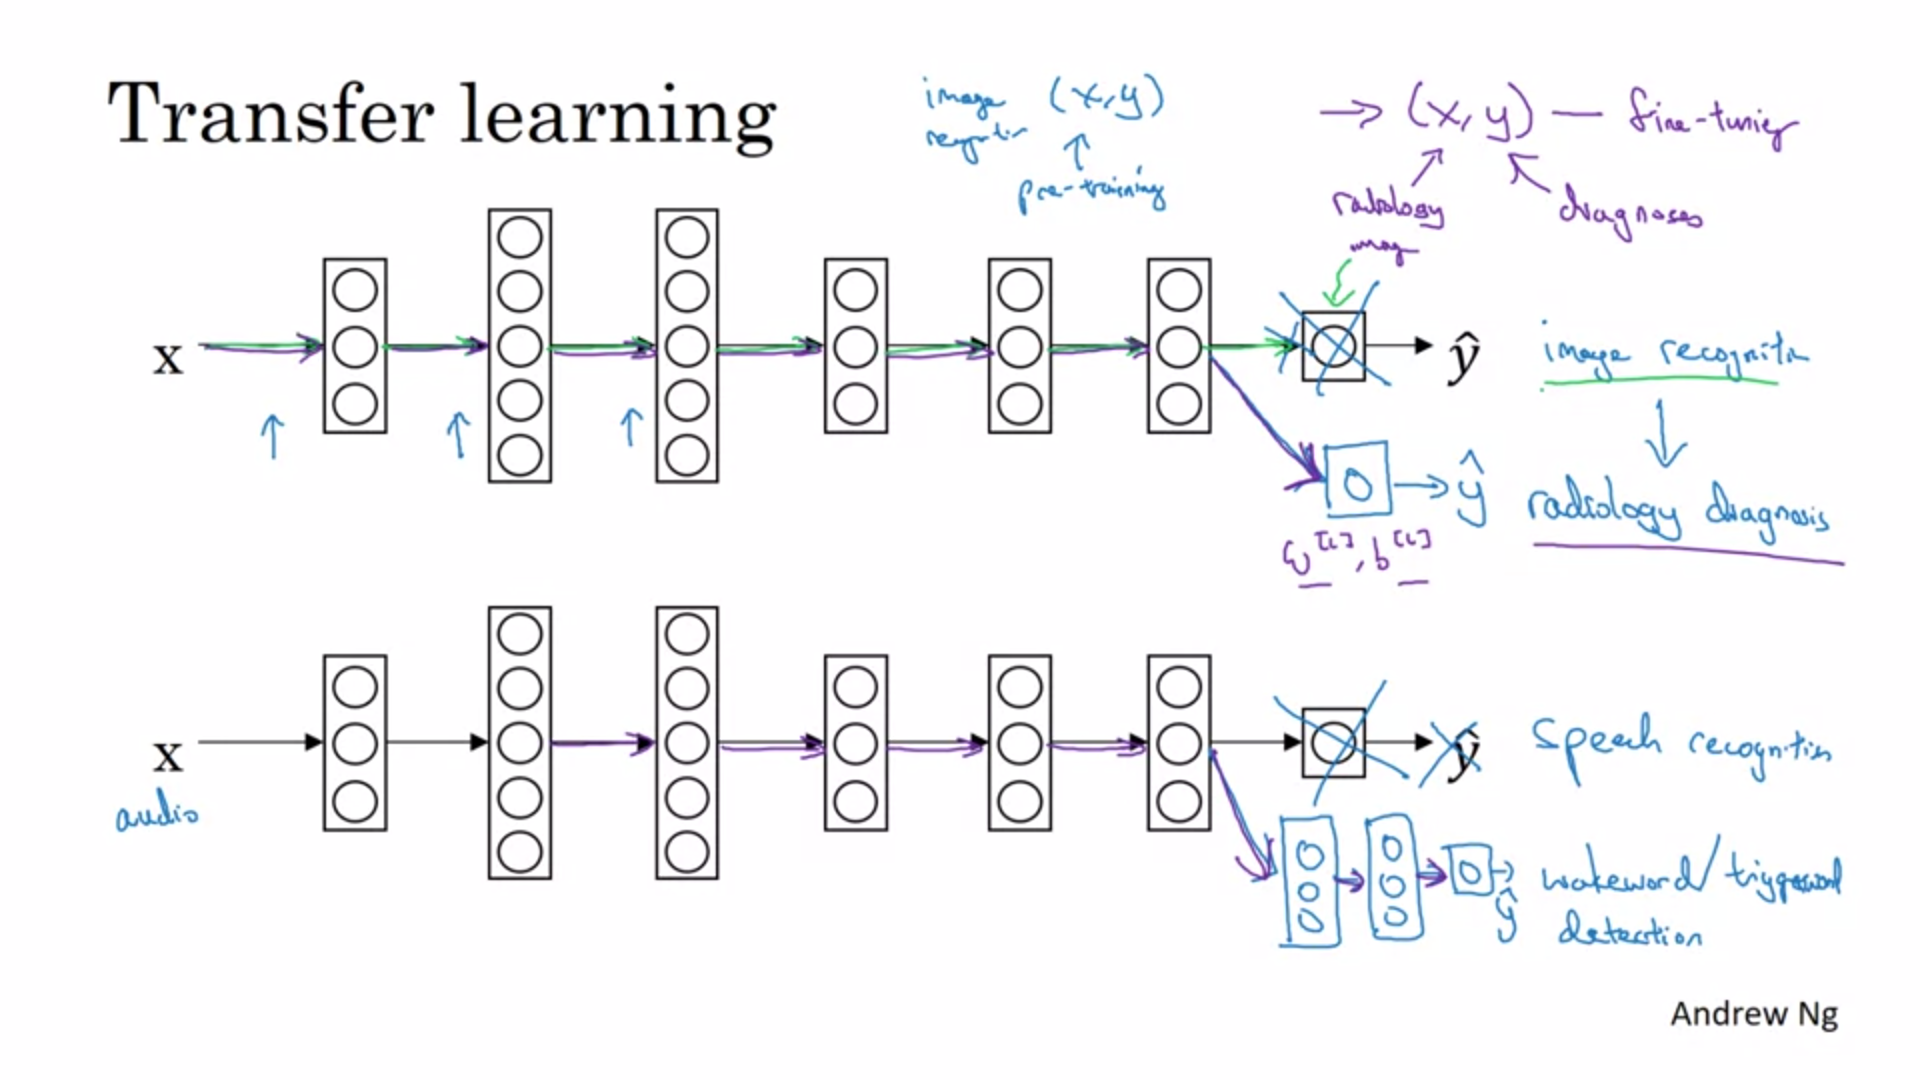 Transfer learning
image (x,y)
pre-training
→ (x,y) — fine-tuning
radiology
diagnoses
x
ŷ
image
ŷ
radiology diagnosis
w[L], b[L]
x
audio
ŷ
Speech recognition
wakeword/triggerword
detection
ŷ
Andrew Ng